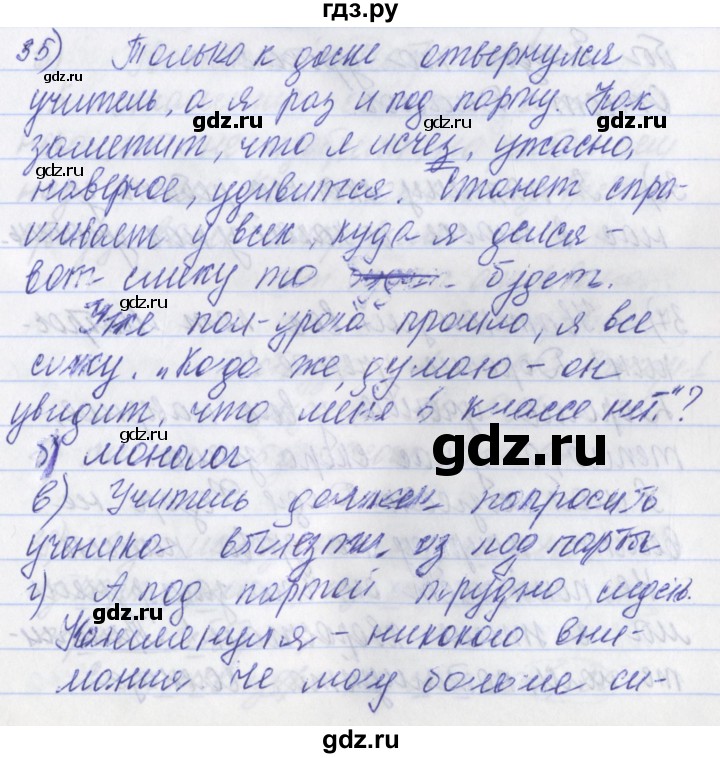 гдз.ру
35) Только к доске отвернулся
gdz.ru gdz.ru
учитель, а я раз и под парту. Как
gdz.ru
заметит, что я исчез, ужасно,
gdz.ru gdz.ru
наверное, удивится. Станет спра-
gdz.ru
шивает у всех, куда я делся -
вот смеху то будет.
gdz.ru
Уже пол-урока прошло, я все
gdz.ru
сижу. „Когда же, думаю - он
увидит, что меня в классе нет."?
gdz.ru
б) монолог
gdz.ru
в) Учитель должен попросить
gdz.ru
ученика вылезти из под парты
г) А под партой трудно сидеть.
gdz.ru gdz.ru
Кашлянул я - никакого вни-
мания. Не могу больше си-
gdz.ru